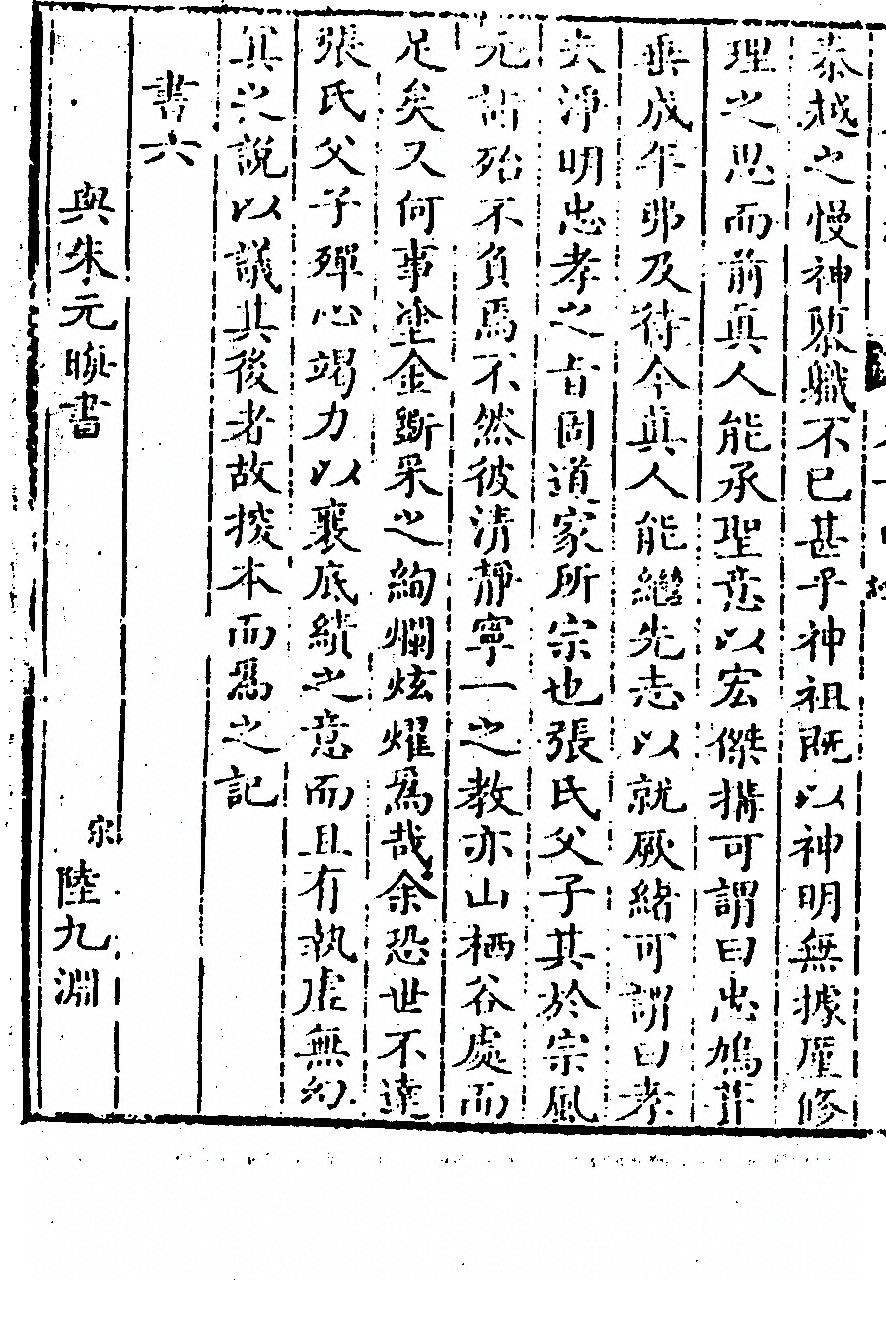 泰越之慢神隳職不已甚乎神祖既以神明無據厘修
理之思而前真人能承聖意以宏傑搆可謂曰忠鳩葺
垂成年弗及待今真人能繼先志以就厥緒可謂曰孝
夫淨明忠孝之旨固道家所宗也張氏父子其於宗風
元詣殆不負焉不然彼清靜寧一之教亦山栖谷處而
足矣又何事塗金斲采之絢爛炫燿爲哉余恐世不達
張氏父子殫心竭力以襄底績之意而且有執虛無幻
冥之說以議其後者故揆本而爲之記
書六
與朱元晦書
宋陸九淵